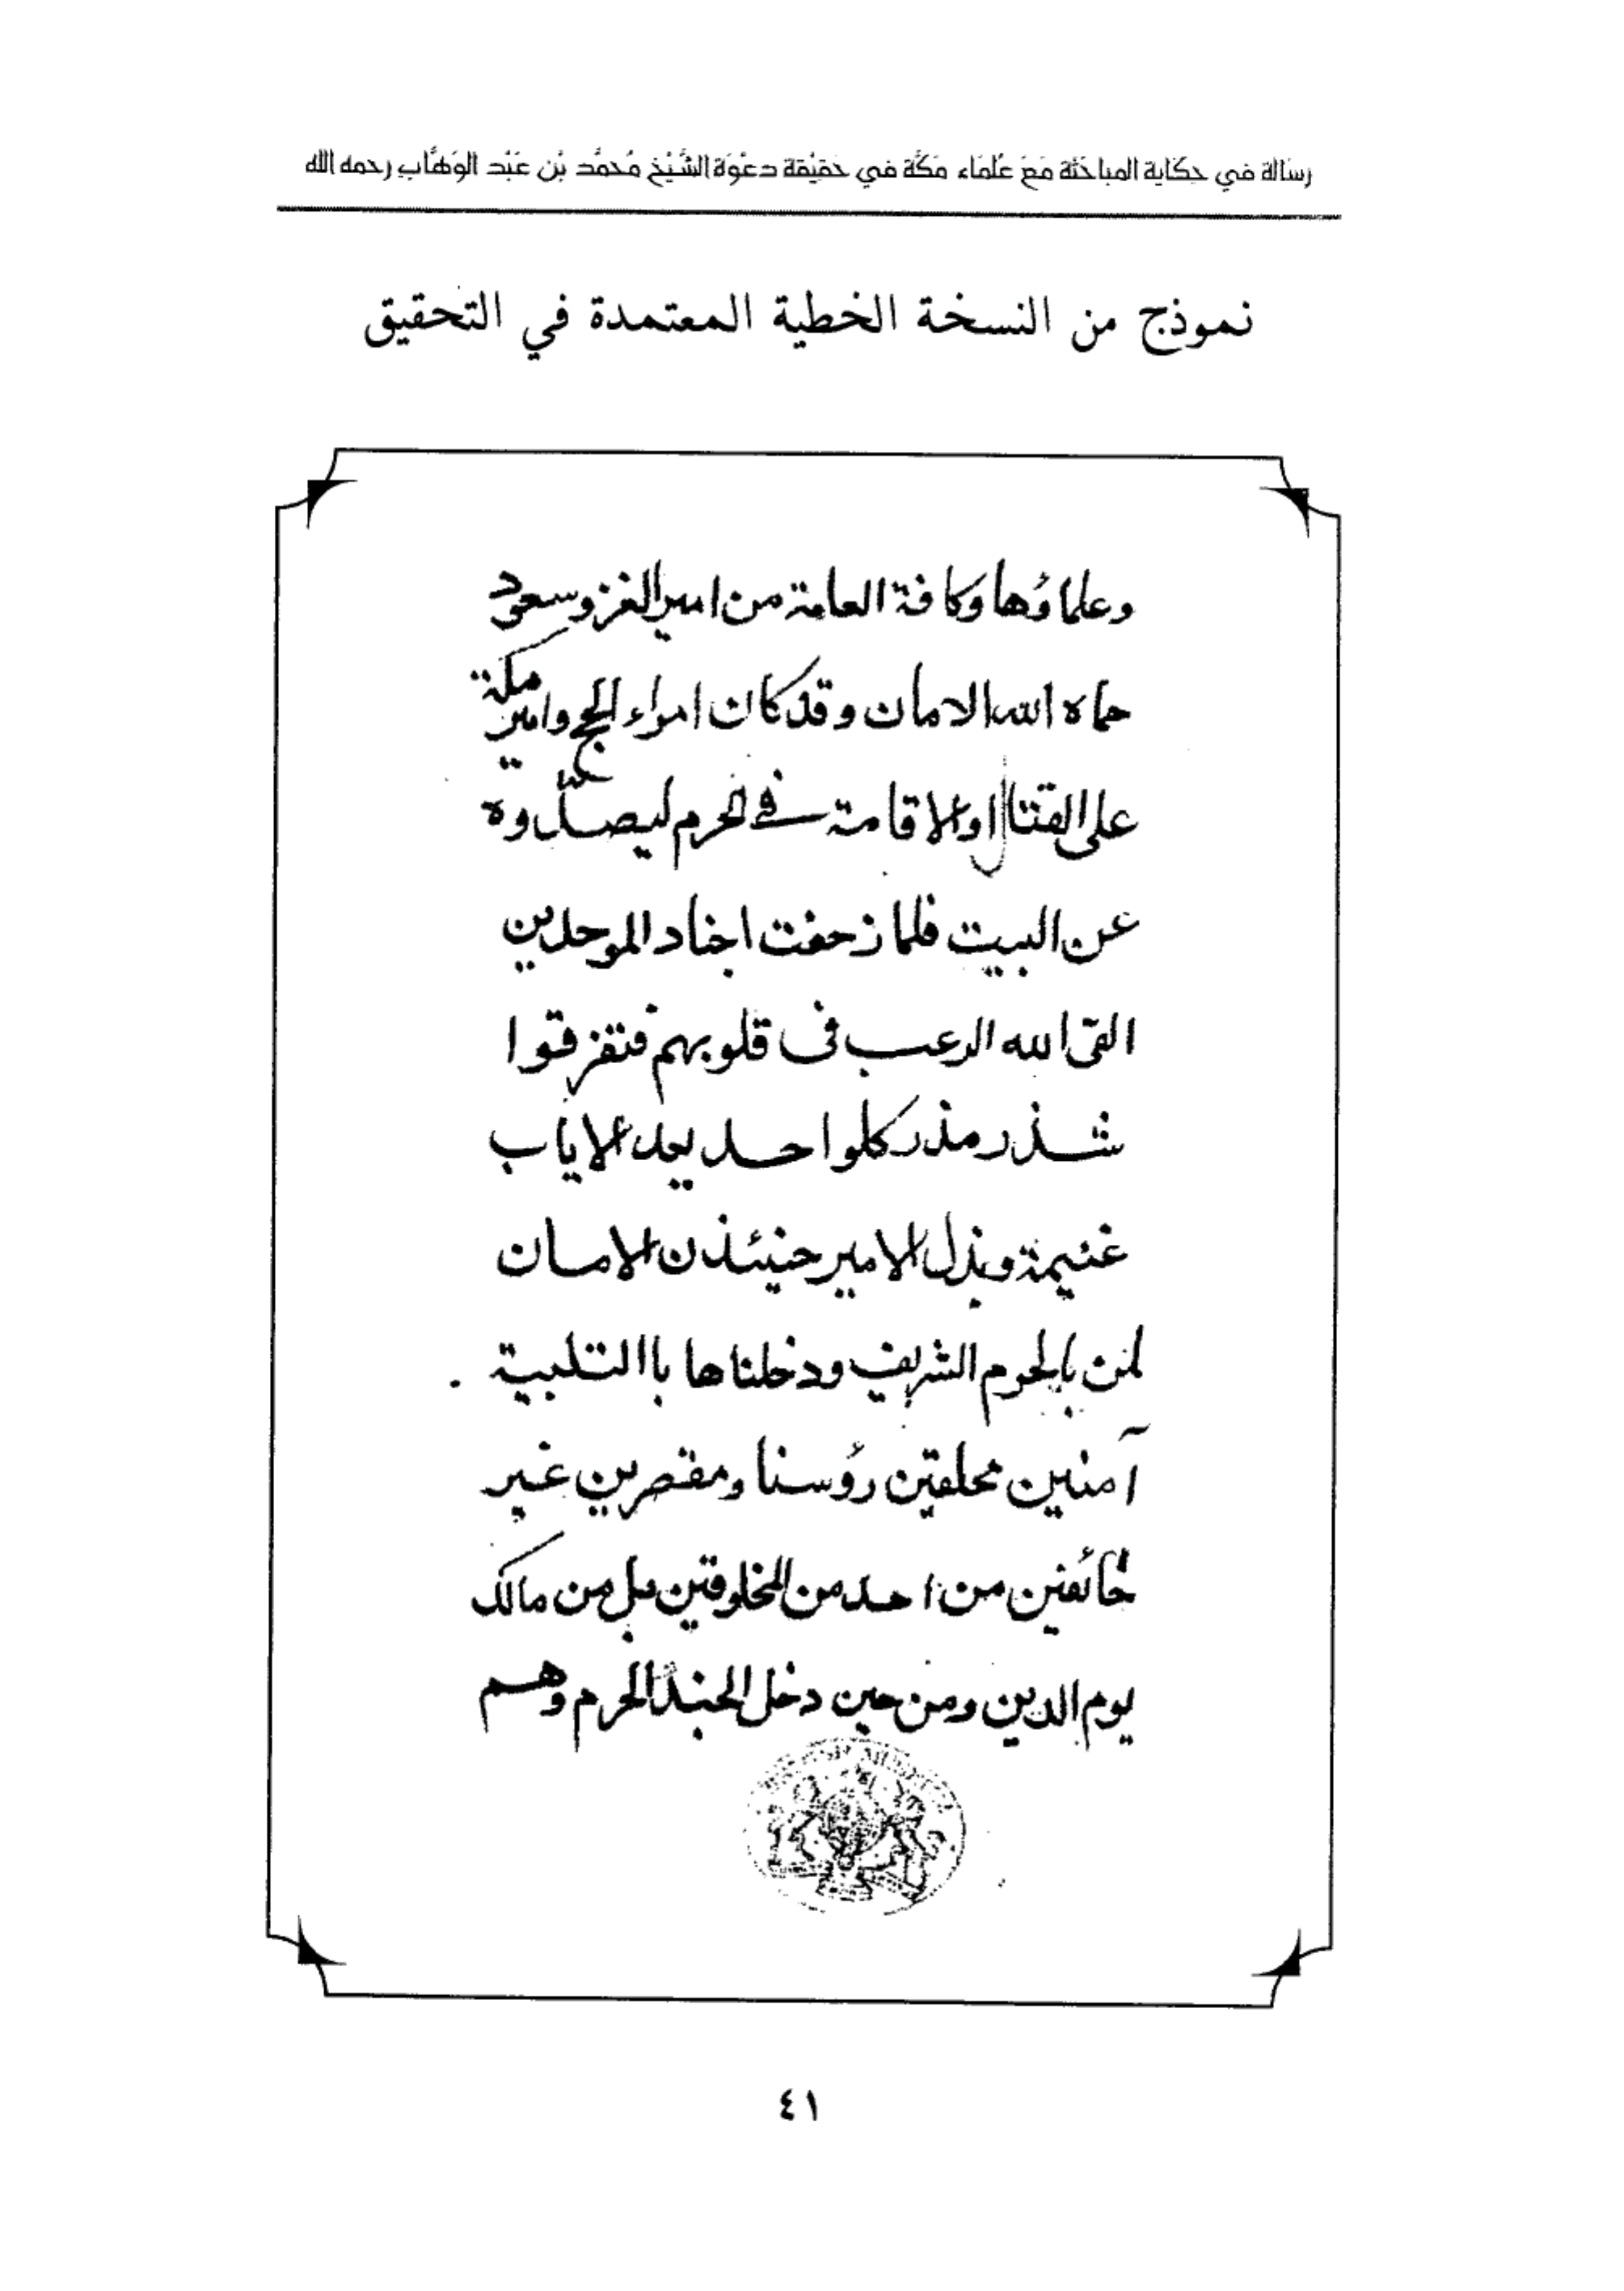 رسَالة في حِكَاية المباحَثة مَعَ عُلمَاء مَكَّة في حَقيْقة دعْوَة الشَّيْخ مُحمَّد بْن عَبْد الوَهَّاب رحمه الله
نموذج من النسخة الخطية المعتمدة في التحقيق
وعلماؤها وكافة العامة من امير الغزو سعود
حماه الله الامان وقد كان امراء الحج وامير مكة
على القتال او الاقامة في الحرم ليصدّوه
عن البيت فلما زحفت اجناد الموحدين
القى الله الرعب فى قلوبهم فتفرقوا
شذر مذر كلوا حد يعد الاياب
غنيمة وبذل الامير حنيئذن الامان
لمن بالحرم الشريف ودخلناها باالتلبية
آمنين محلقين رؤسنا ومقصرين غير
خائفين من احد من المخلوقين بل من مالك
يوم الدين ومن حين دخل الجند الحرم وهم
٤١